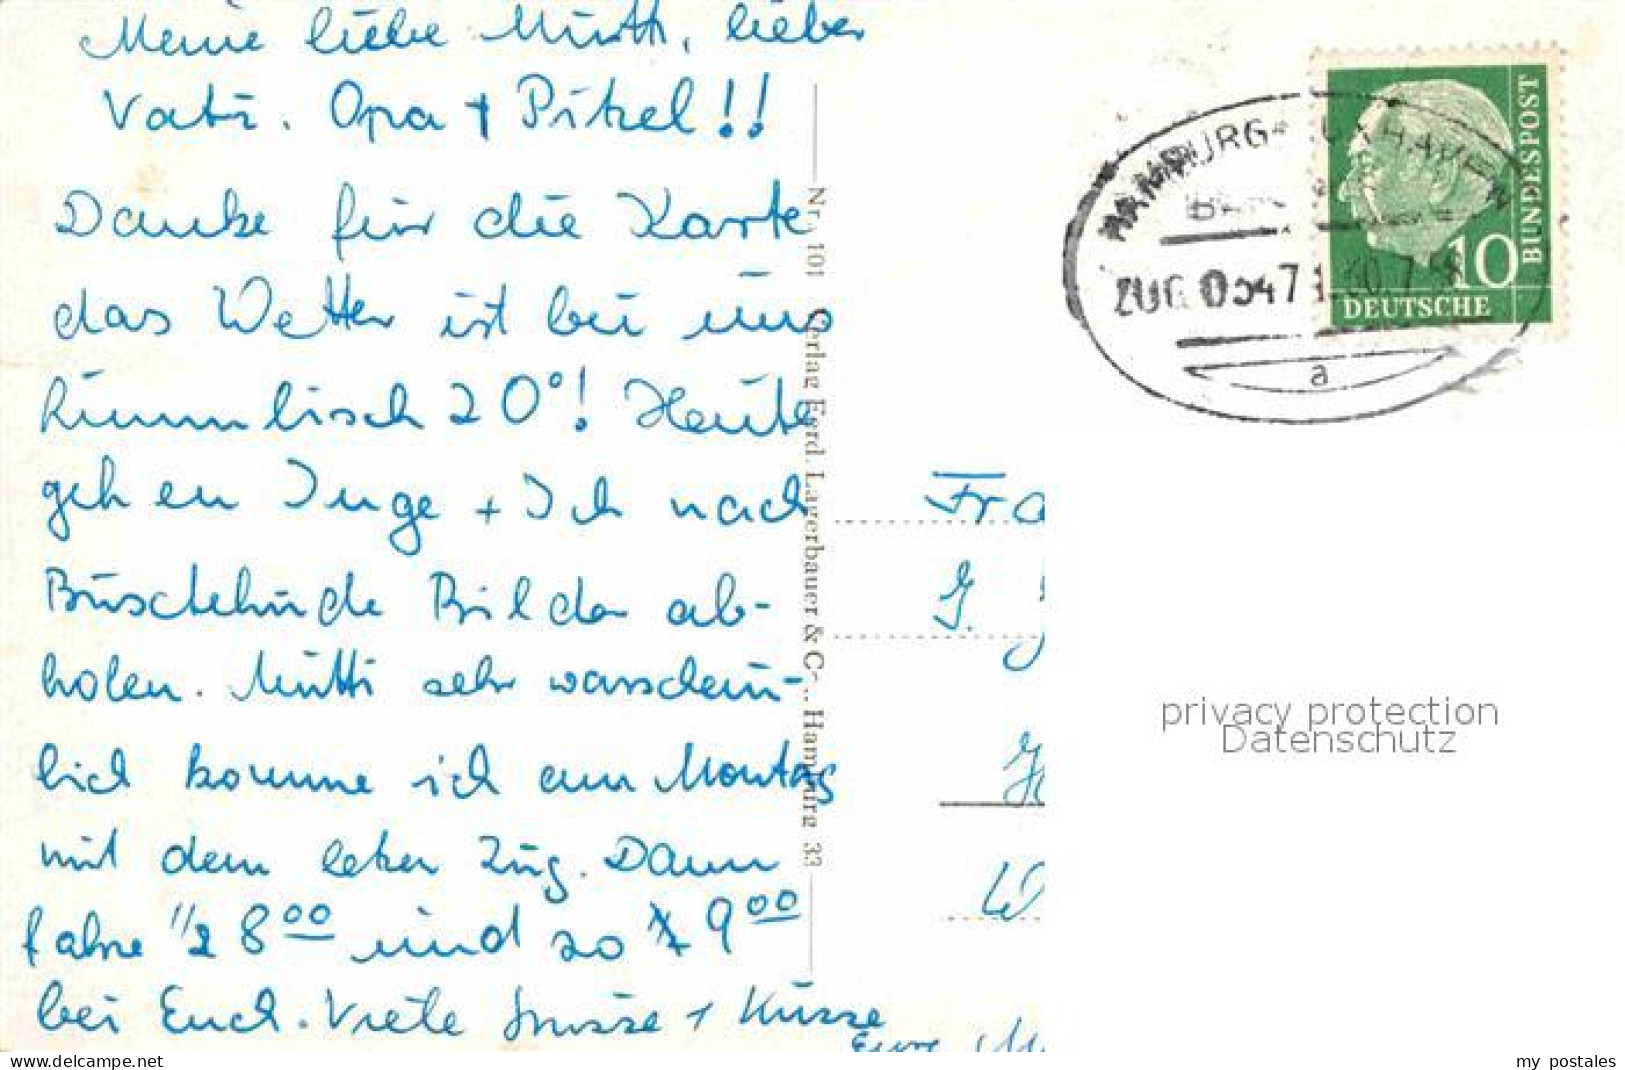 Meine liebe Mutti, lieber
Vati. Opa + Pitzel!!
Danke für die Karte
das Wetter ist bei uns
himmlisch 20°! Heute
gehen Inge + Ich nach
Buxtehude Bilder ab-
holen. Mutti sehr warschein-
lich komme ich am Montag
mit dem letzten Zug. Dann
fahre 1/2 8 00 und so 9 00
bei Euch. Viele Grüsse + Küsse
Eure
Nr. 101 Verlag Ferd. Lagerbauer & Co., Hamburg 33
HAMBURG-CUXHAVEN
ZUG
a
10
DEUTSCHE
BUNDESPOST
privacy protection
Datenschutz
www.delcampe.net
my_postales